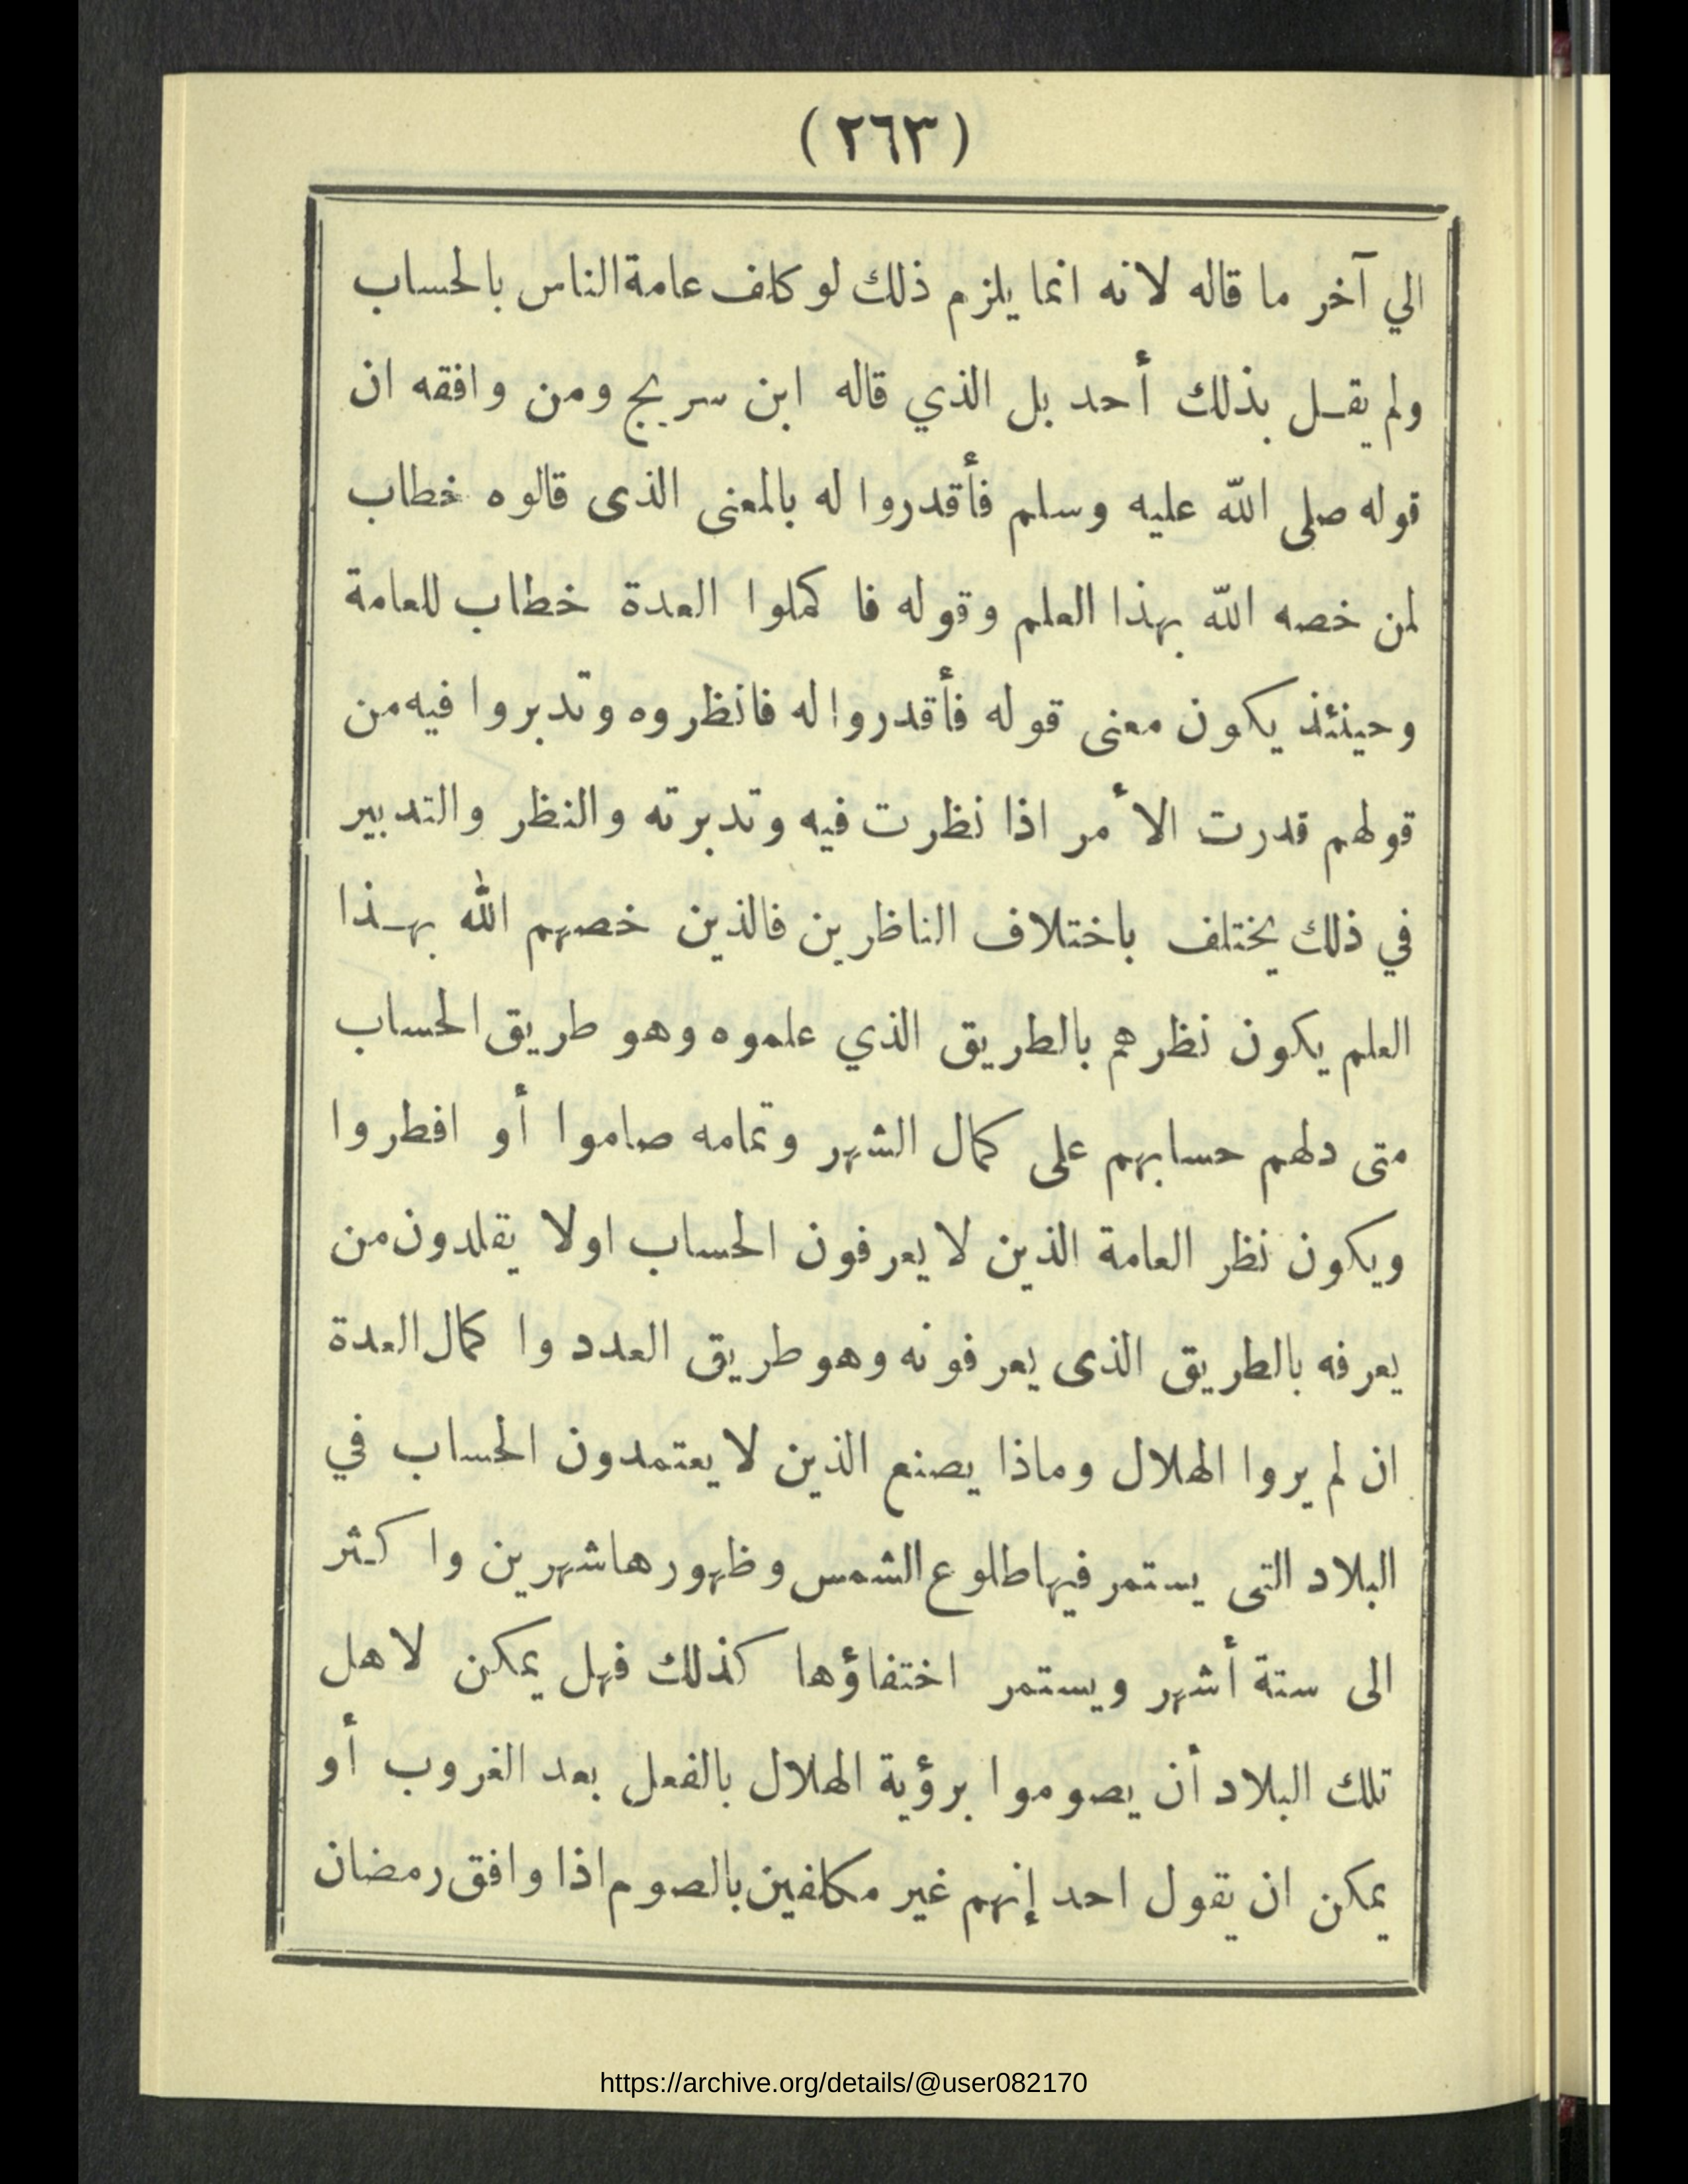 (٢٦٣)
الي آخر ما قاله لانه انما يلزم ذلك لو كلف عامة الناس بالحساب
ولم يقل بذلك أحد بل الذي قاله ابن سريج ومن وافقه ان
قوله صلى الله عليه وسلم فأقدروا له بالمعنى الذى قالوه خطاب
لمن خصه الله بهذا العلم وقوله فا كملوا العدة خطاب للعامة
وحينئذ يكون معنى قوله فأقدروا له فانظروه وتدبروا فيه من
قولهم قدرت الأمر اذا نظرت فيه وتدبرته والنظر والتدبير
في ذلك يختلف باختلاف الناظرين فالذين خصهم الله بهذا
العلم يكون نظرهم بالطريق الذي علموه وهو طريق الحساب
متى دلهم حسابهم على كمال الشهر وتمامه صاموا أو افطروا
ويكون نظر العامة الذين لا يعرفون الحساب اولا يقلدون من
يعرفه بالطريق الذى يعرفونه وهو طريق العدد وا كمال العدة
ان لم يروا الهلال وماذا يصنع الذين لا يعتمدون الحساب في
البلاد التى يستمر فيها طلوع الشمس وظهورها شهرين وا كثر
الى ستة أشهر ويستمر اختفاؤها كذلك فهل يمكن لاهل
تلك البلاد أن يصوموا برؤية الهلال بالفعل بعد الغروب أو
يمكن ان يقول احد إنهم غير مكلفين بالصوم اذا وافق رمضان
https://archive.org/details/@user082170